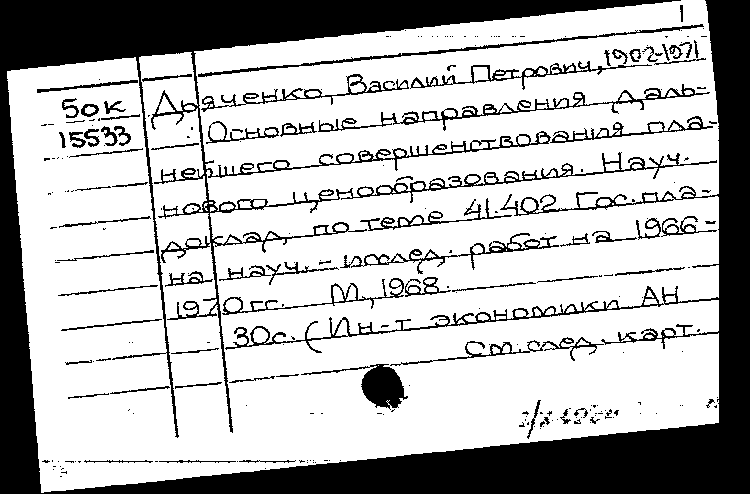 1
50к Дьяченко, Василий Петрович, 1902-1971
15533 Основные направления даль-
нейшего совершенствования пла-
нового ценообразования. Науч.
доклад по теме 41.402 Гос.пла-
на науч.-исслед. работ на 1966-
1970гг. М., 1968.
30с. (Ин-т экономики АН
См.след. карт.